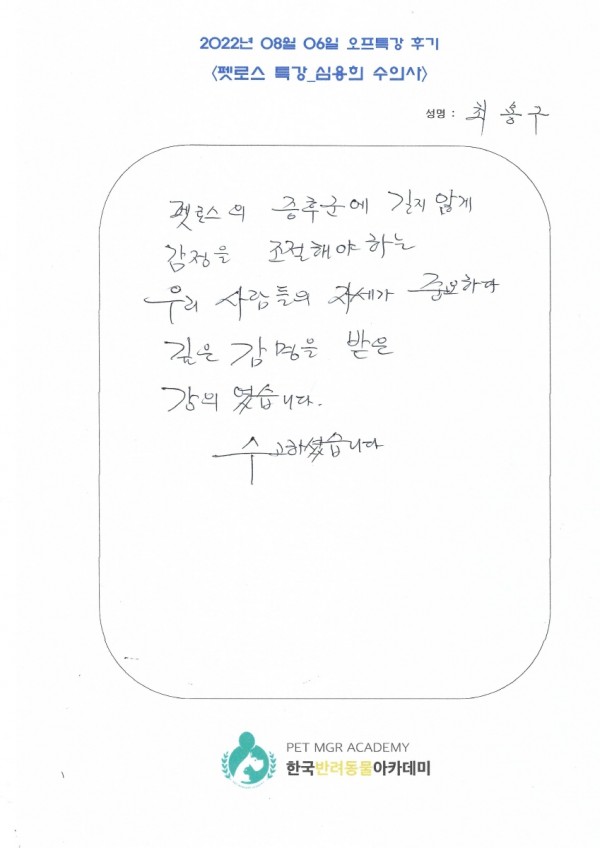 2022년 08월 06일 오프특강 후기
<펫로스 특강_심용희 수의사>
성명 : 최용구
펫로스의 증후군에 길지 않게
감정을 조절해야 하는
우리 사람들의 자세가 중요하다
깊은 감명을 받은
강의 였습니다.
수고하셨습니다
PET MGR ACADEMY
한국반려동물아카데미